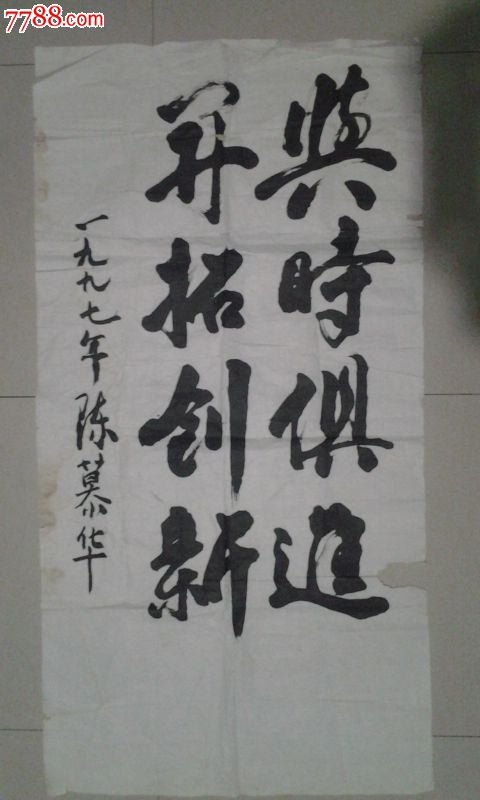 7788.com
與時俱進
开拓创新
一九九七年陈慕华